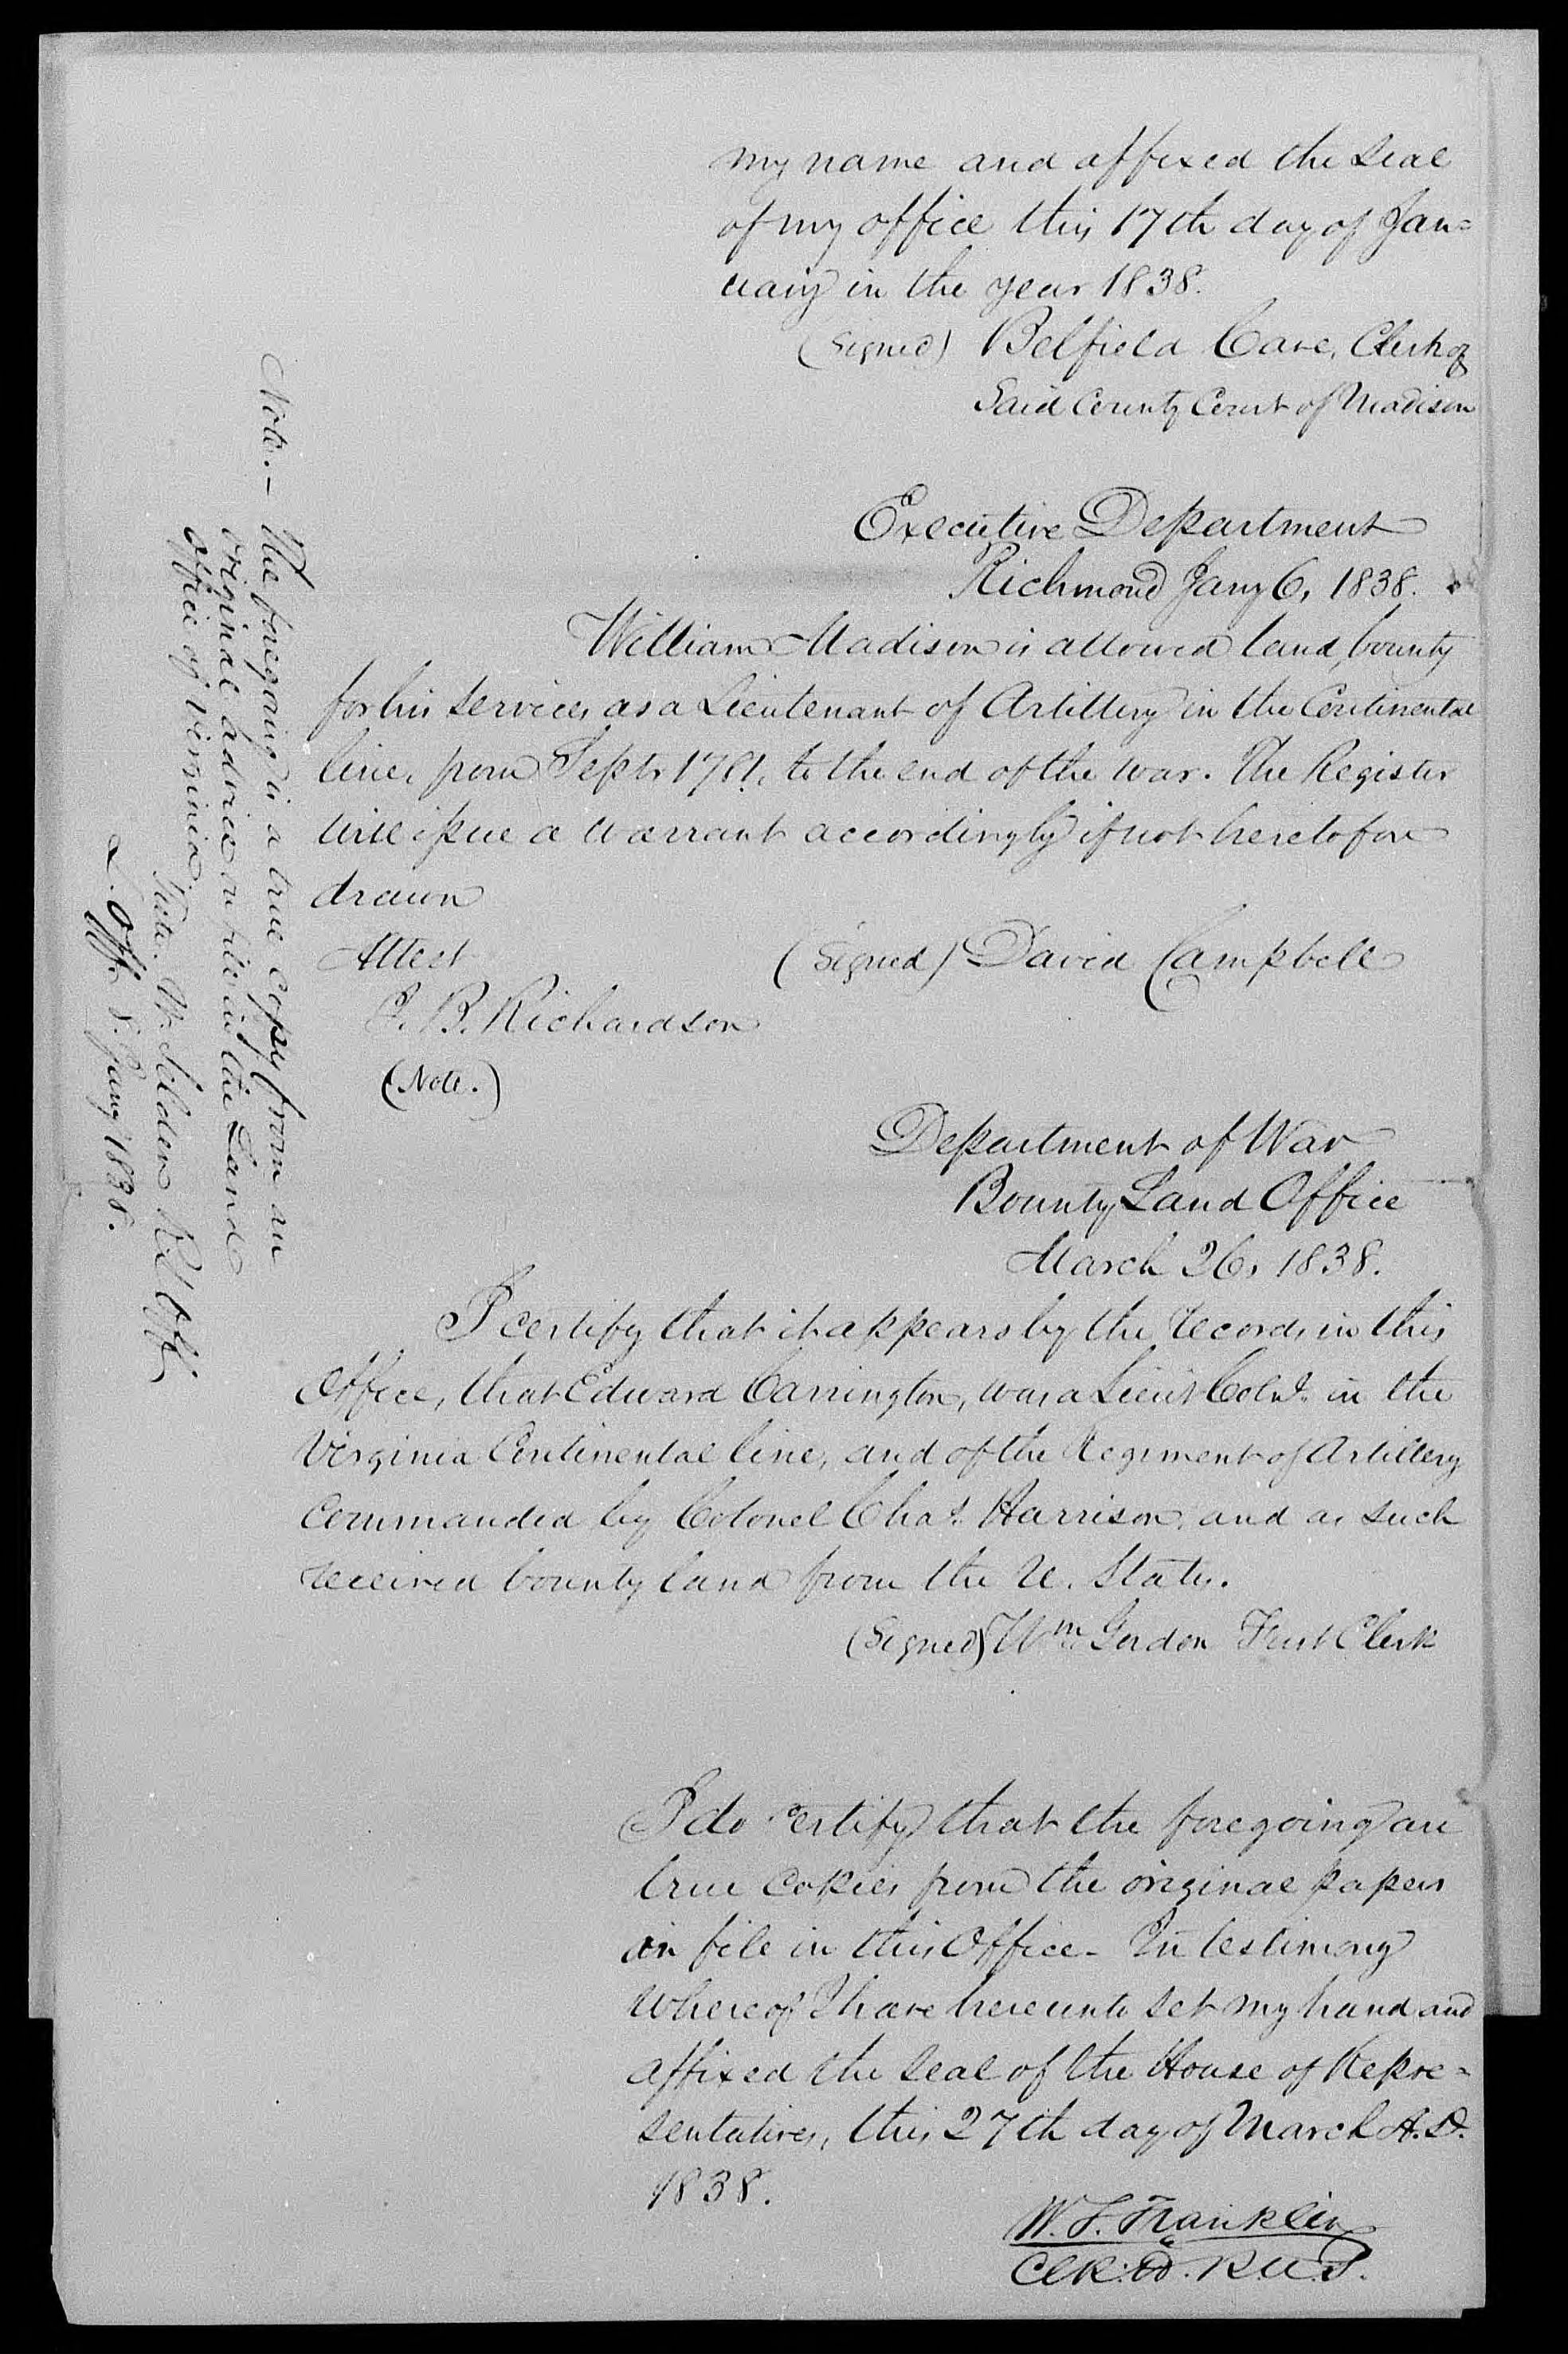 my name and affixed the seal
of my office this 17th day of Jan=
uary in the year 1838.
(Signed) Belfield Cave, Clerk of
Said County Court of Madison
Executive Department
Richmond Jany 6, 1838.
William Madison is allowed land bounty
for his services as a Lieutenant of Artillery in the Continental
line, from Septr 1781, to the end of the war. The Register
will issue a warrant accordingly if not heretofore
drawn
Attest
(Signed) David Campbell
J. B. Richardson
(Note.)
Note. - The foregoing is a true copy from an
original advice on file in the Land
office of Virginia.
Teste. W. Selden R L Off
L. Off. 8. Jany 1838.
Department of War
Bounty Land Office
March 26, 1838.
I certify that it appears by the records in this
Office, that Edward Carrington, was a Lieut Colnl. in the
Virginia Continental line, and of the Regiment of Artillery
Commanded by Colonel Chas. Harrison, and as such
received bounty land from the U. States.
(Signed) Wm Gordon First Clerk
I do certify that the foregoing are
true copies from the original papers
on file in this Office - In testimony
whereof I have hereunto set my hand and
affixed the seal of the House of Repre=
sentatives, this 27th day of March A.D.
1838.
W. S. Franklin
Clk: Ho. R. U.S.